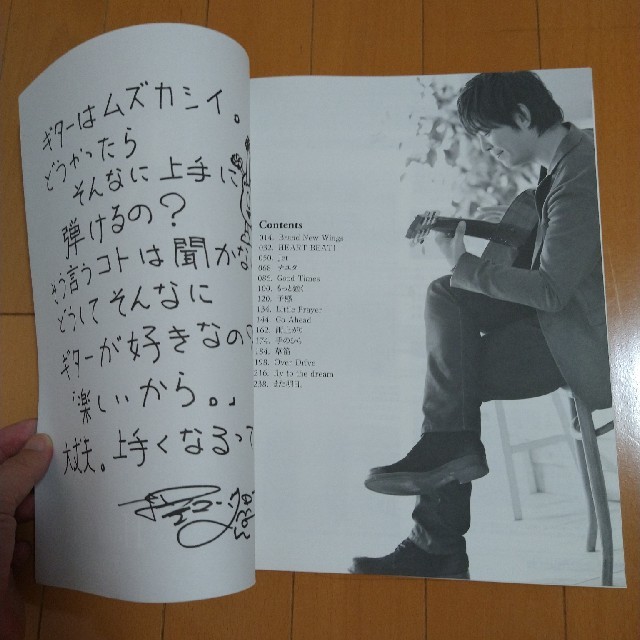 ギターはムズカシイ。
どうやったら
そんなに上手に
弾けるの?
そう言うコトは聞かな
どうしてそんなに
ギターが好きなの
楽しいから。」
大丈夫。上手くなるって
Contents
014. Brand New Wings
032. HEART BEAT!
050.
068. ナユタ
086. Good Times
100.
120. 予感
136. Little Prayer
144. Go Ahead
162. 雨上がり
176. 手のひら
184. 草笛
198. Over Drive
216. fly to the dream
238. また明日。